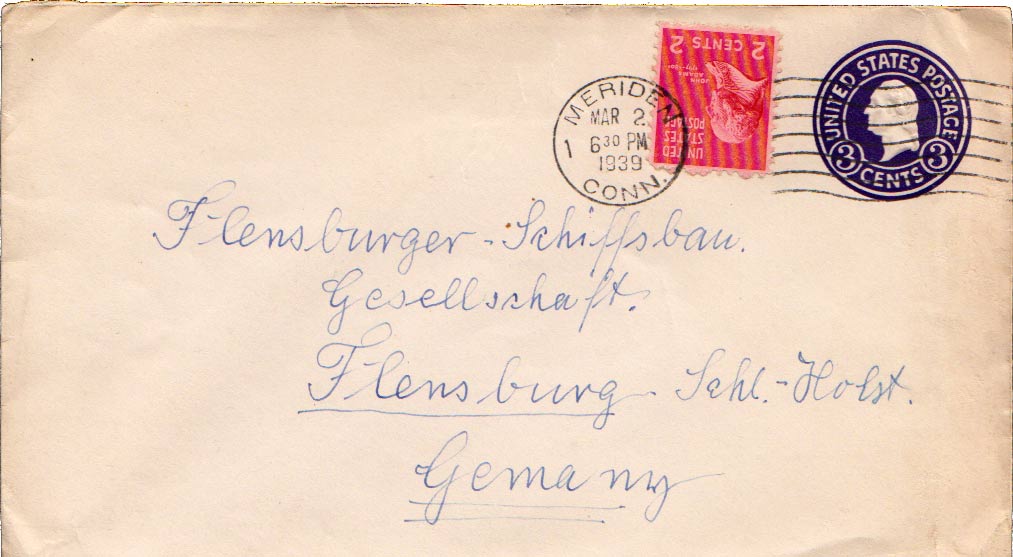 MERIDEN
MAR 2
1 6 30 PM
1939
CONN.
2 CENTS 2
JOHN
ADAMS
UNITED
STATES
POSTAGE
UNITED STATES POSTAGE
3 CENTS 3
Flensburger - Schiffsbau.
Gesellschaft.
Flensburg - Schl.-Holst.
Gemany